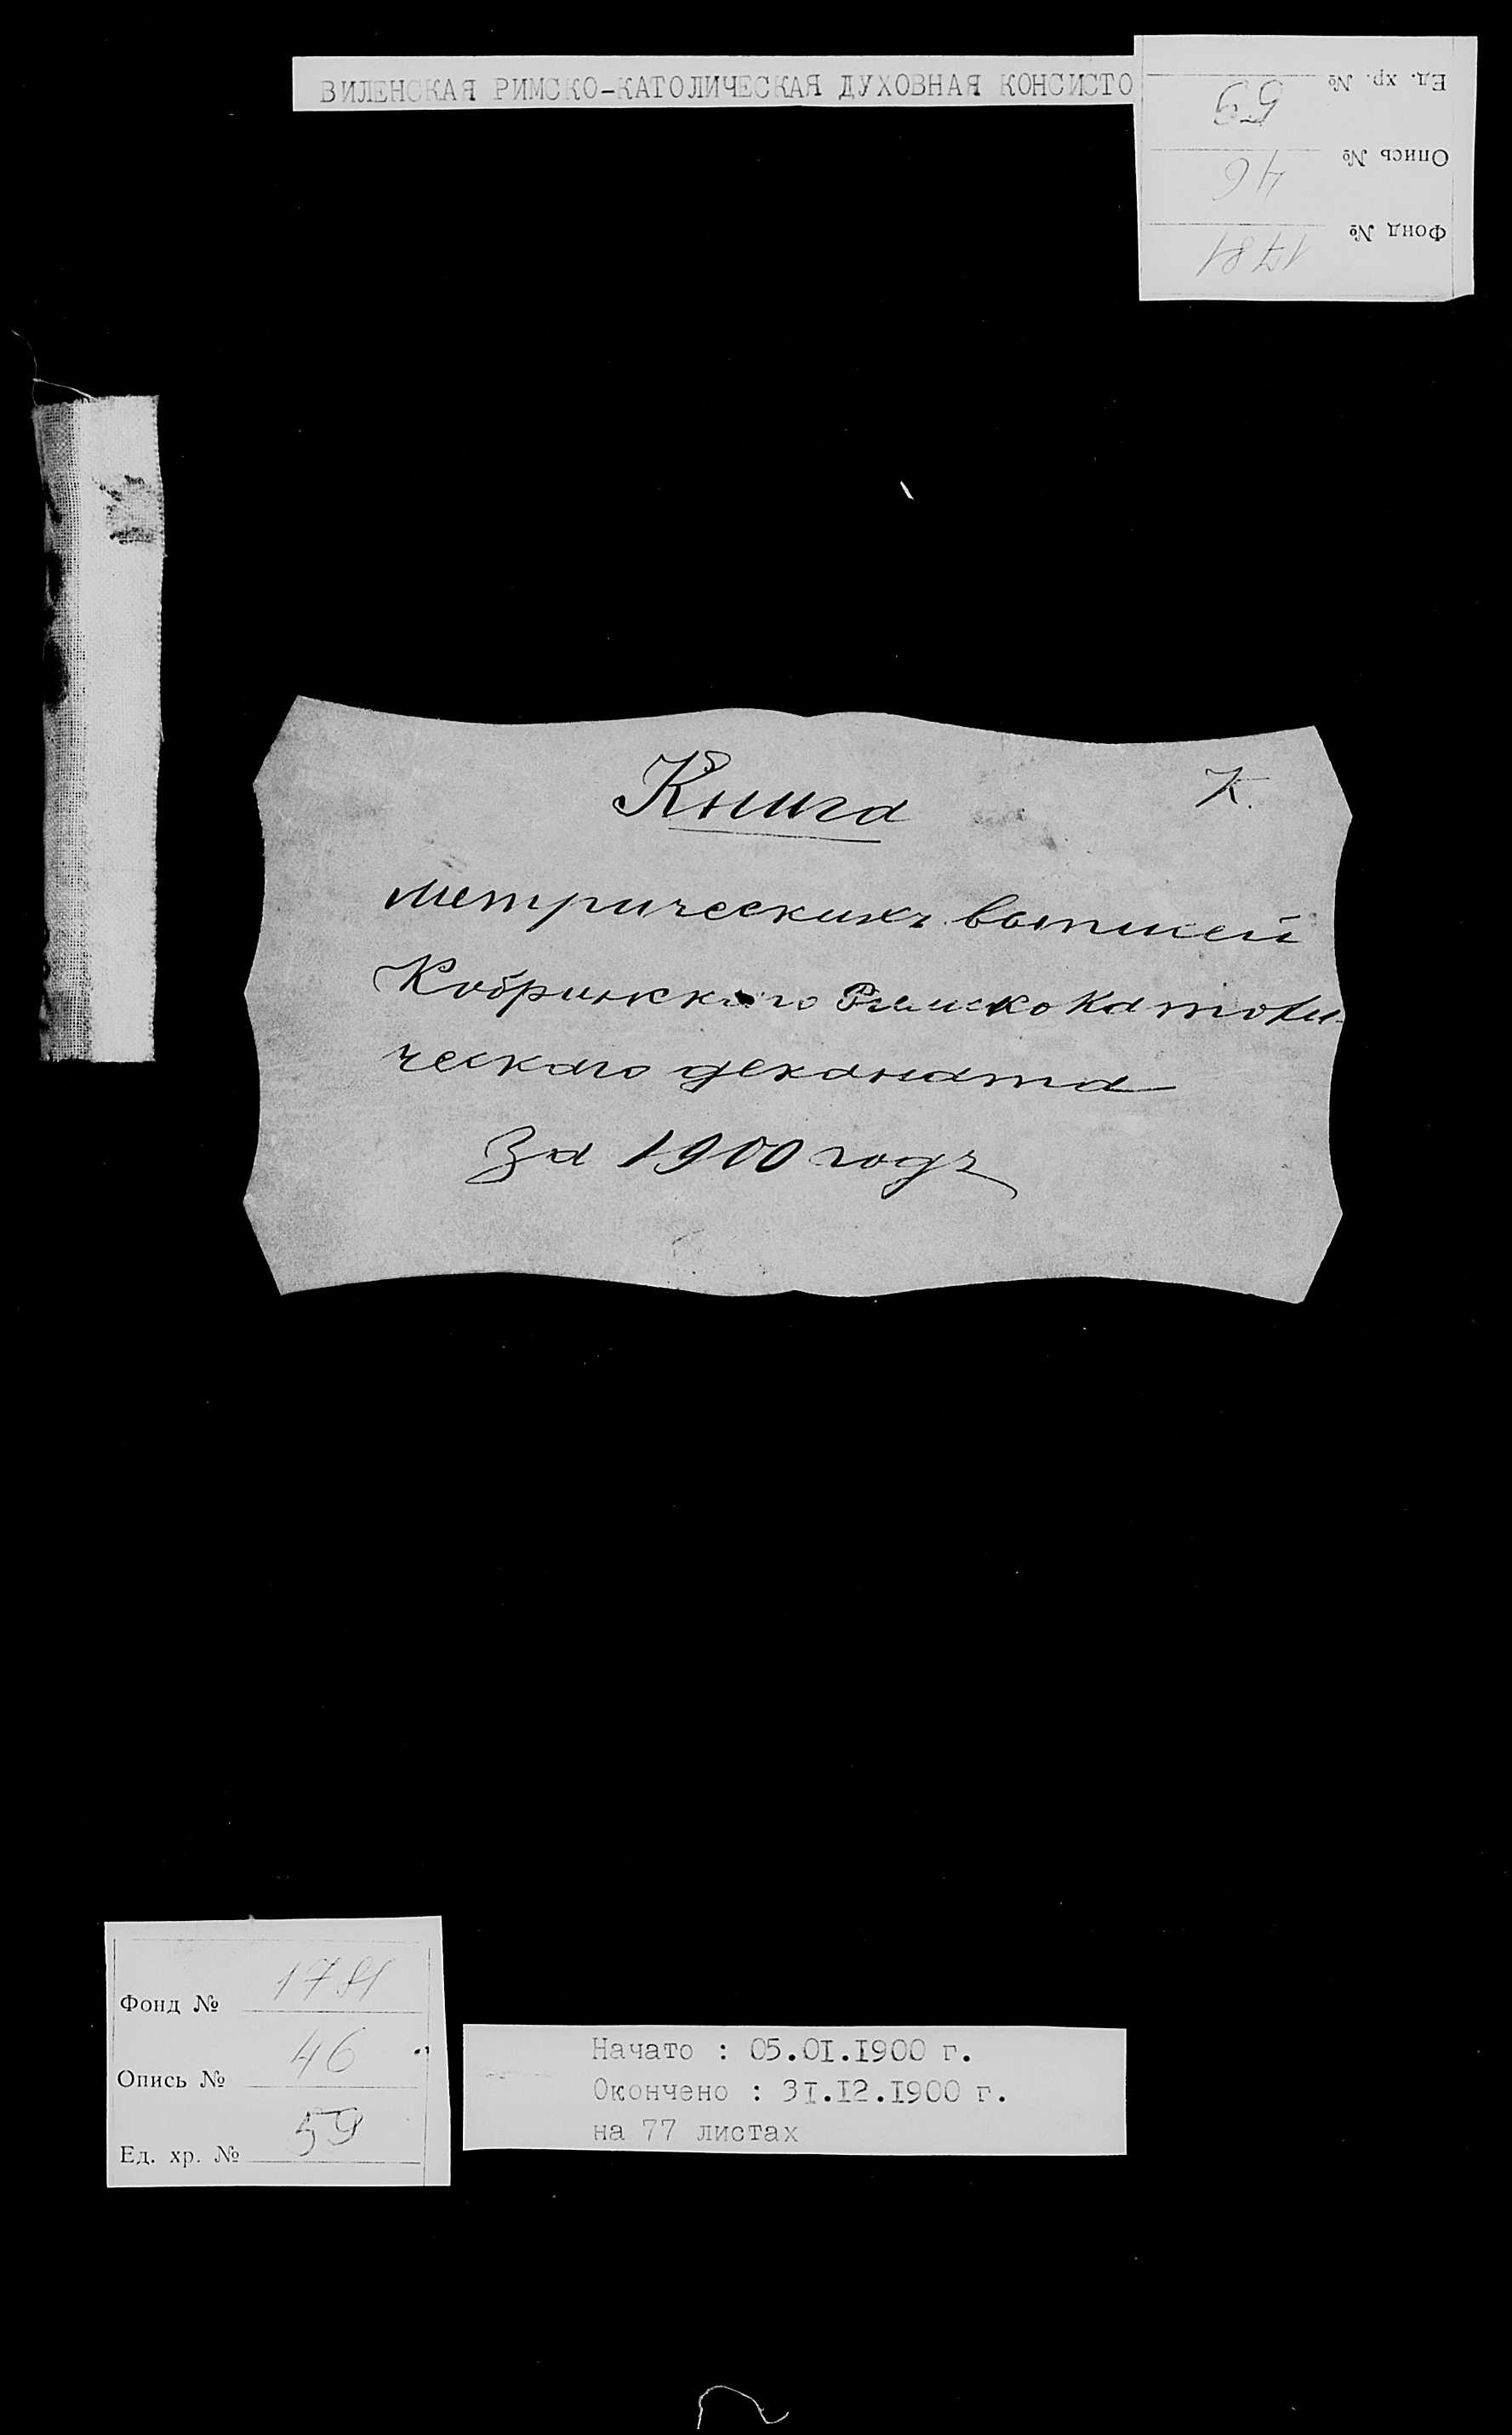 ВИЛЕНСКАЯ РИМСКО-КАТОЛИЧЕСКАЯ ДУХОВНАЯ КОНСИСТО
Фонд № 1781
Опись № 46
Ед. хр. № 59
Книга
К.
метрическихъ выписей
Кобринскаго Римско Католи-
ческаго деканата
За 1900 годъ
Фонд № 1781
Опись № 46
Ед. хр. № 59
Начато : 05.01.1900 г.
Окончено : 31.12.1900 г.
на 77 листах